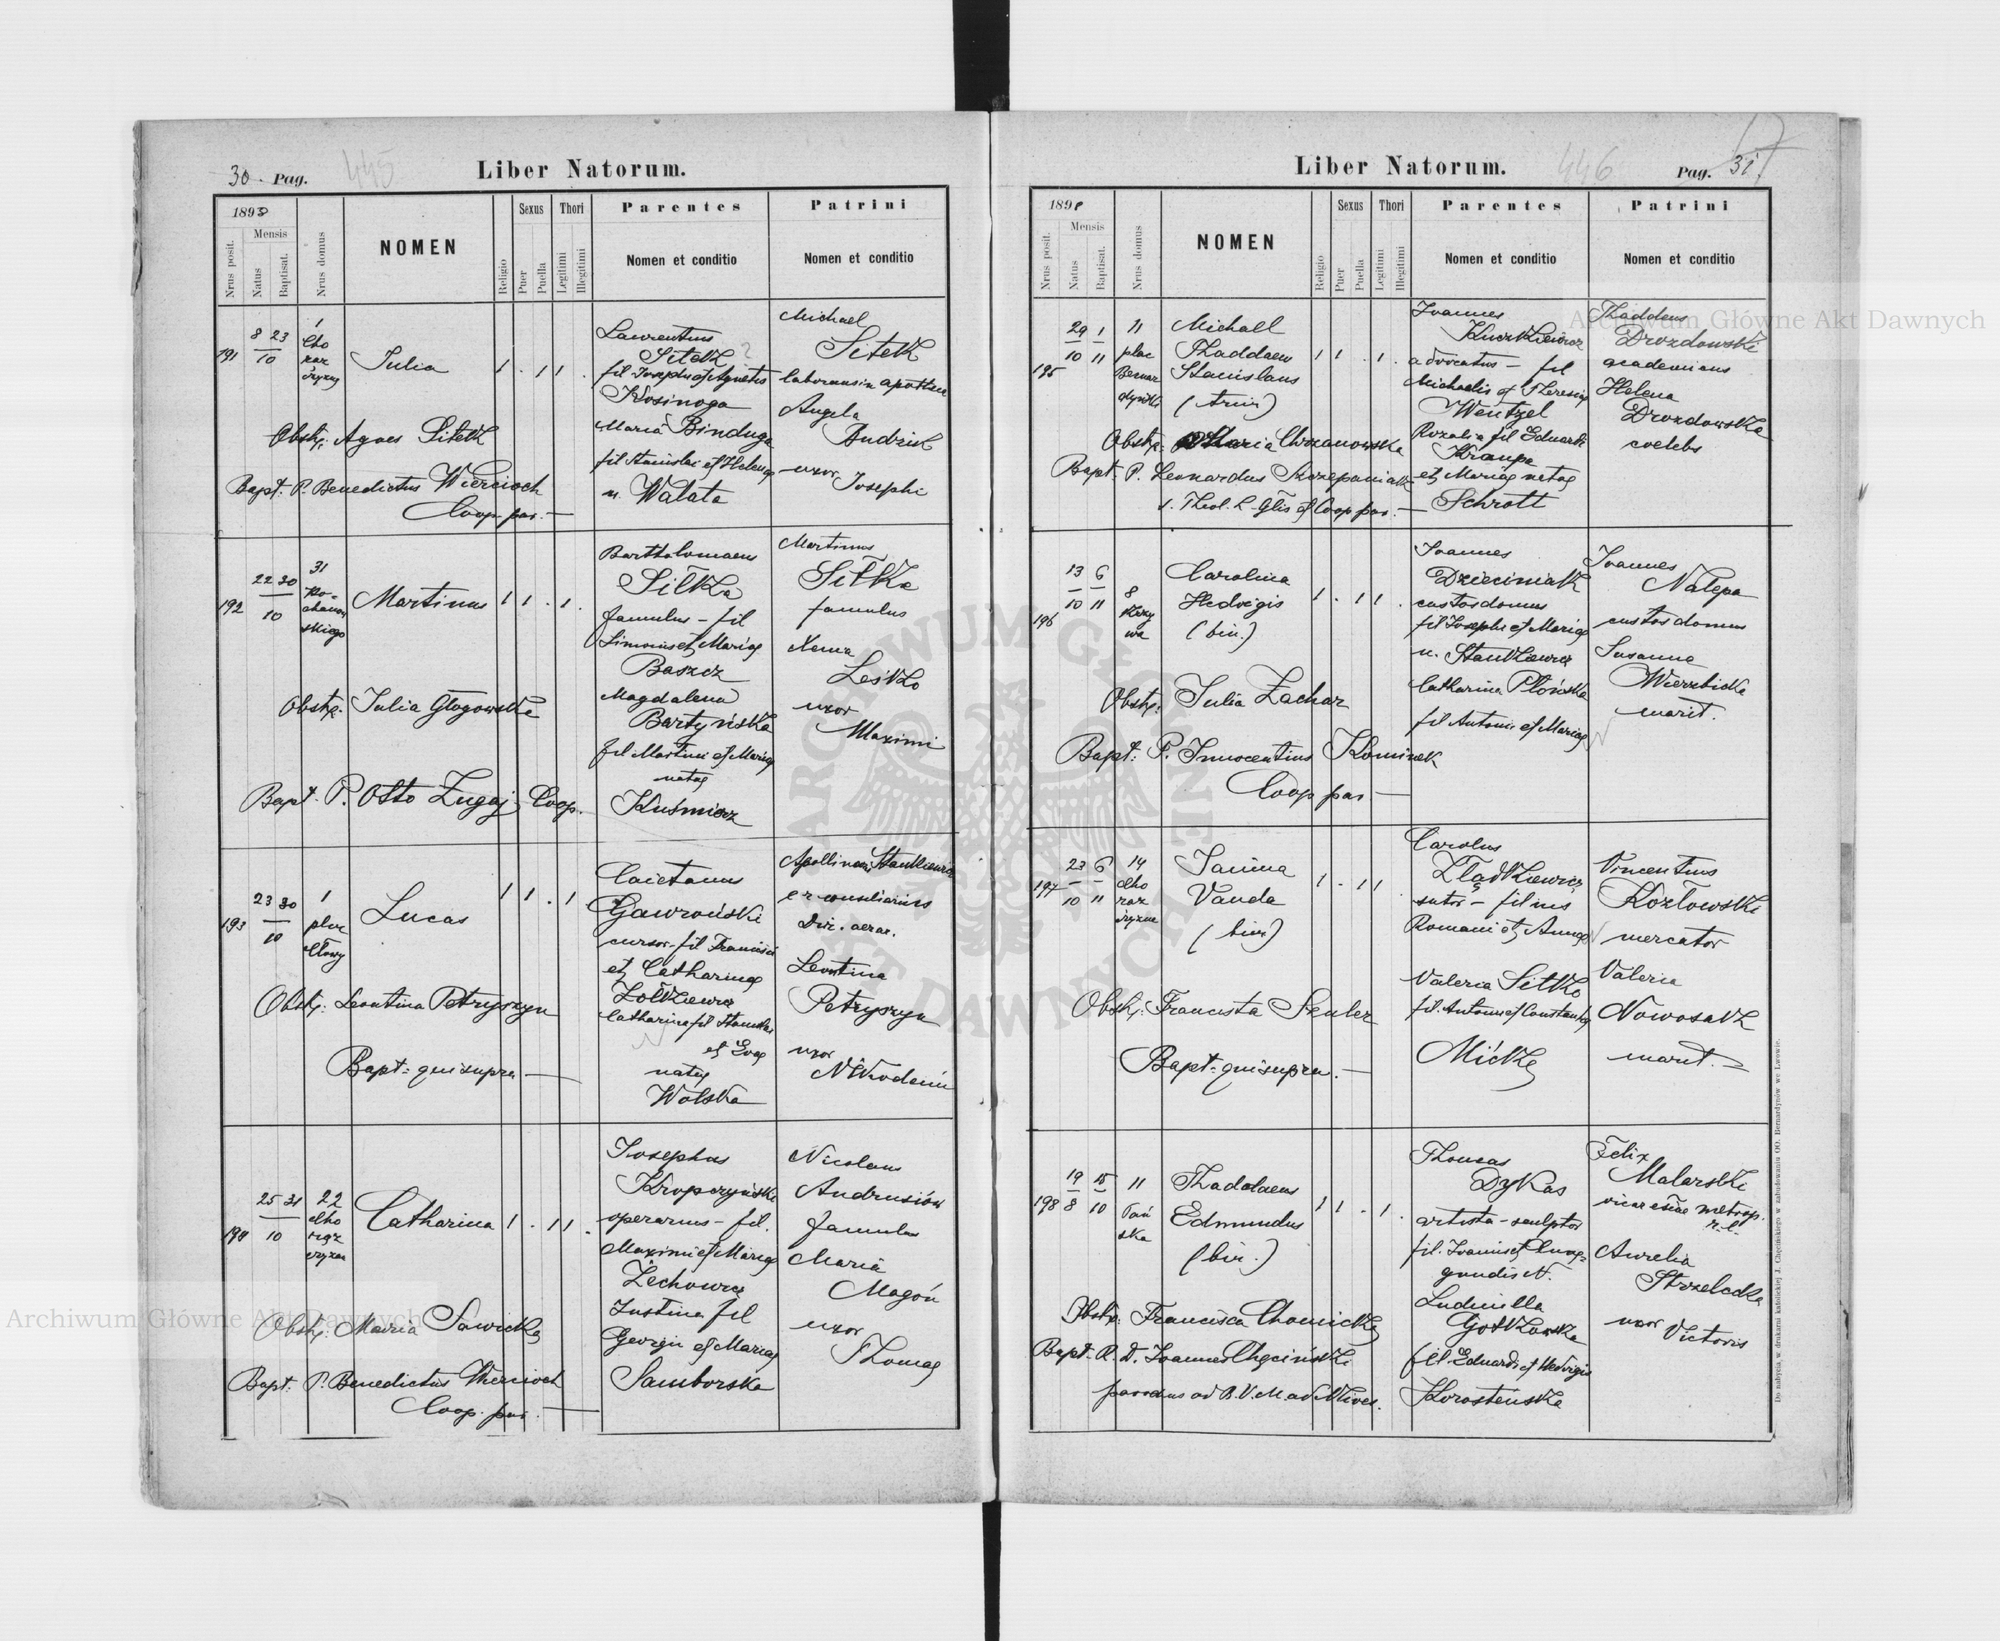 30. Pag.
445
Liber Natorum.
189
Nrus posit.
Mensis
Natus
Baptisat.
Nrus domus
NOMEN
Religio
Sexus
Puer
Puella
Thori
Legitimi
Illegitimi
Parentes
Nomen et conditio
Patrini
Nomen et conditio
191
8 23
10
1
Cho
raz
czyzny
Julia
1 . 1 1 .
Laurentius
Sitek ?
fil Josephi et Agnetis
Kosinoga
Maria Binduga
fil Stanislai et Helenae
n. Walata
Michael
Sitek
Angela
Andzish
uxor Josephi
Obstx: Agnes Sitek
Bapt. P. Benedictus Wiercioch
Coop. par. —
192
22 30
10
31
Ko-
chanow
skiego
Martinus
1 1 . 1 .
Bartholomaeus
Sitka
famulus - fil
Simonis et Mariae
Baszcz
Magdalena
Bartyńska
fil Martini et Mariae
natae
Kuśmierz
Martinus
Sitka
famulus
Xenia
Leśko
uxor
Maximi
Obstx. Julia Głogowska
Bapt. P. Otto Zugaj Coop.
193
23 30
10
1
plac
Cłowy
Lucas
1 1 . 1 .
Caietanus
Gawroński
cursor - fil Francisci
et Catharinae
Żółkiewicz
Catharina fil Stanislai
et Evae
natae
Wolska
Apollinaris Stankiewicz
cr consiliarius
Dir. aerar.
Leontina
Petryszyn
uxor
Nikodemi
Obstx: Leontina Petryszyn
Bapt: qui supra —
194
25 31
10
22
Cho
rąż
czyzna
Catharina
1 . 1 1 .
Josephus
Kropczyński
operarius - fil.
Maximi et Mariae
Zechowicz
Justina fil
Georgii et Mariae
Samborska
Nicolaus
Andrusiów
famulus
Maria
Magoń
uxor
Thomae
Obstx: Maria Sawicka
Bapt: P. Benedictus Wiercioch
Coop. par. —
Liber Natorum.
446
Pag. 31.
17
189
Nrus posit.
Mensis
Natus
Baptisat.
Nrus domus
NOMEN
Religio
Sexus
Puer
Puella
Thori
Legitimi
Illegitimi
Parentes
Nomen et conditio
Patrini
Nomen et conditio
195
29 1
10 11
11
plac
Bernar
dyński
Michael
Thaddaeus
Stanislaus
(trin)
1 1 . 1 .
Joannes
Kuczkiewicz
advocatus - fil
Michaelis et Theresiae
Wentzel
Rozalia fil Eduardi
Kraupa
et Mariae natae
Schrott
Thaddeus
Drozdowski
academicus
Helena
Drozdowska
coelebs
Obstx: Maria Chrzanowska
Bapt. P. Leonardus Szczepaniak
s. Theol. L. Glis et Coop par. —
196
13 6
10 11
8
Krzy
wa
Carolina
Hedvigis
(bin.)
1 . 1 1 .
Joannes
Dzieciniak
custos domus
fil Josephi et Mariae
n. Stankiewicz
Catharina Płońska
fil Antonii et Mariae
Joannes
Nalepa
custos domus
Susanna
Wierzbicka
marit.
Obstx: Julia Zachar
Bapt: P. Innocentius Kominek
Coop par —
197
23 6
10 11
14
Cho
raz
czyzna
Janina
Vanda
(bin)
1 . 1 1 .
Carolus
Żłądkiewicz
sutor - filius
Romani et Annae
Valeria Sitko
fil. Antonii et Constantiae
Micke
Vincentius
Kozłowski
mercator
Valeria
Nowosak
marit. —
Obstx: Francisca Seuler
Bapt: qui supra. —
198
19 15
8 10
11
Pań
ska
Thaddaeus
Edmundus
(bin.)
1 1 . 1 .
Thomas
Dykas
artista - sculptor
fil. Joannis et Cune-
gundis N.
Ludmilla
Gotkowska
fil. Eduardi et Hedvigis
Korosteńska
Felix
Malarski
vicar metrop.
r. l.
Aurelia
Strzelecka
uxor Victoris
Obstx: Francisca Chomicka
Bapt. R. D. Joannes Chęciński
parochus ad B. V. M. ad Nives.
Do nabycia w drukarni katolickiej J. Chęcińskiego w zabudowaniu OO. Bernardynów we Lwowie.
Archiwum Główne Akt Dawnych
Archiwum Główne Akt Dawnych
ARCHIWUM GŁÓWNE AKT DAWNYCH